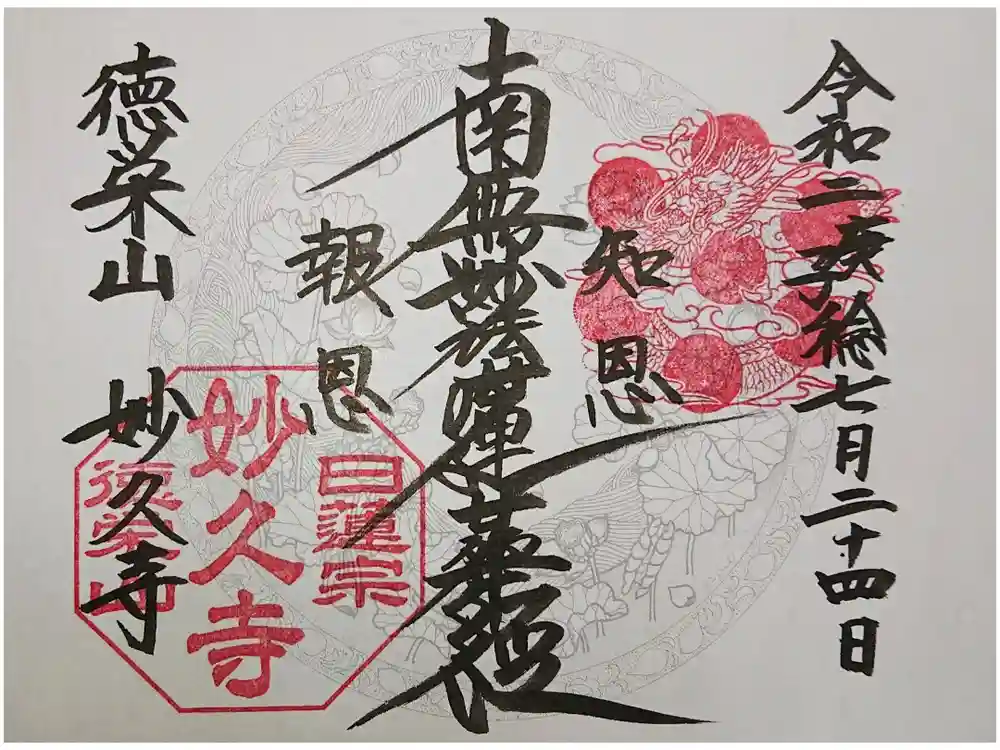 令和二庚子稔七月二十四日
知恩
南無妙法蓮華経
報恩
徳栄山 妙久寺
日蓮宗
妙久寺
徳榮山